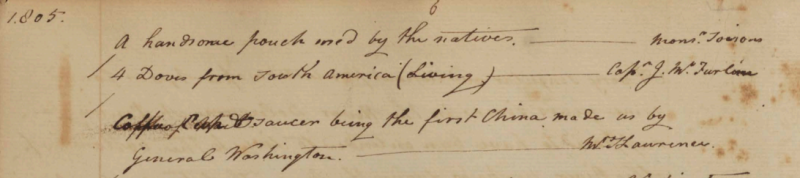 6
1805.
A handsome pouch used by the natives. — Monsr. Toisons
4 Doves from South America (Living) — Capn. J. Mc.
saucer being the first China made us by
General Washington. — Lawrence.